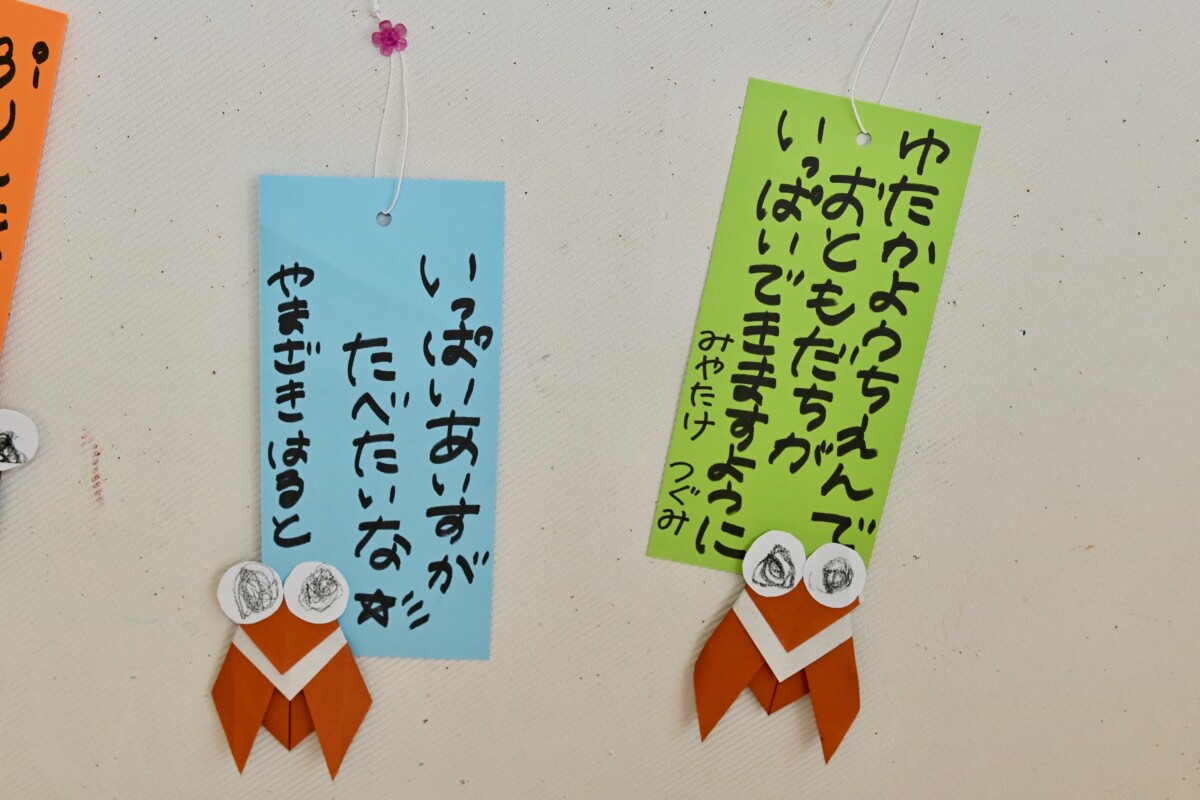 ゆたかようちえんで
おともだちが
いっぱいできますように
みやたけ つぐみ
いっぱいあいすが
たべたいな☆
やまざきはると